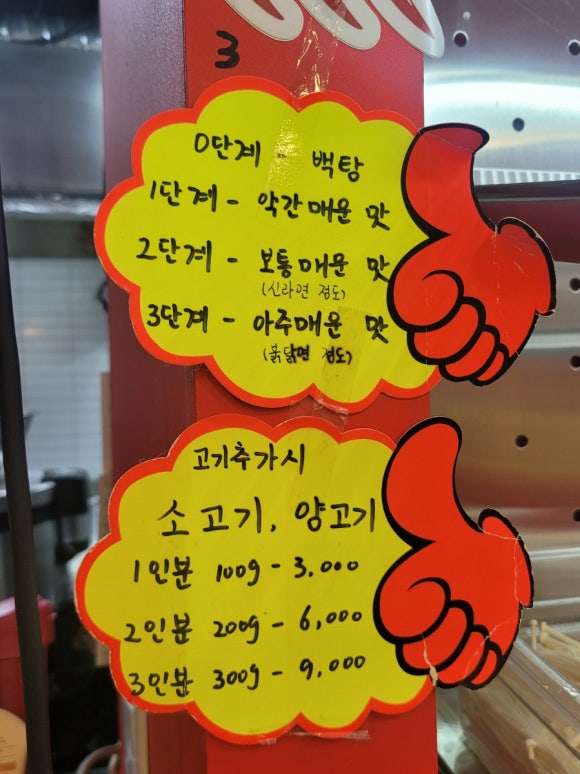 3
0단계 - 백탕
1단계 - 약간매운 맛
2단계 - 보통매운 맛
(신라면 정도)
3단계 - 아주매운 맛
(붉닭면 정도)
고기추가시
소고기, 양고기
1인분 100g - 3,000
2인분 200g - 6,000
3인분 300g - 9,000